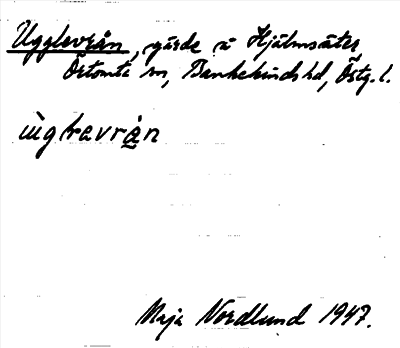 Ugglevrån, gärde i Hjälmsäter
Örtomta sn, Bankekinds hd, Östg. l.
ùglravrån
Maja Nordlund 1947.